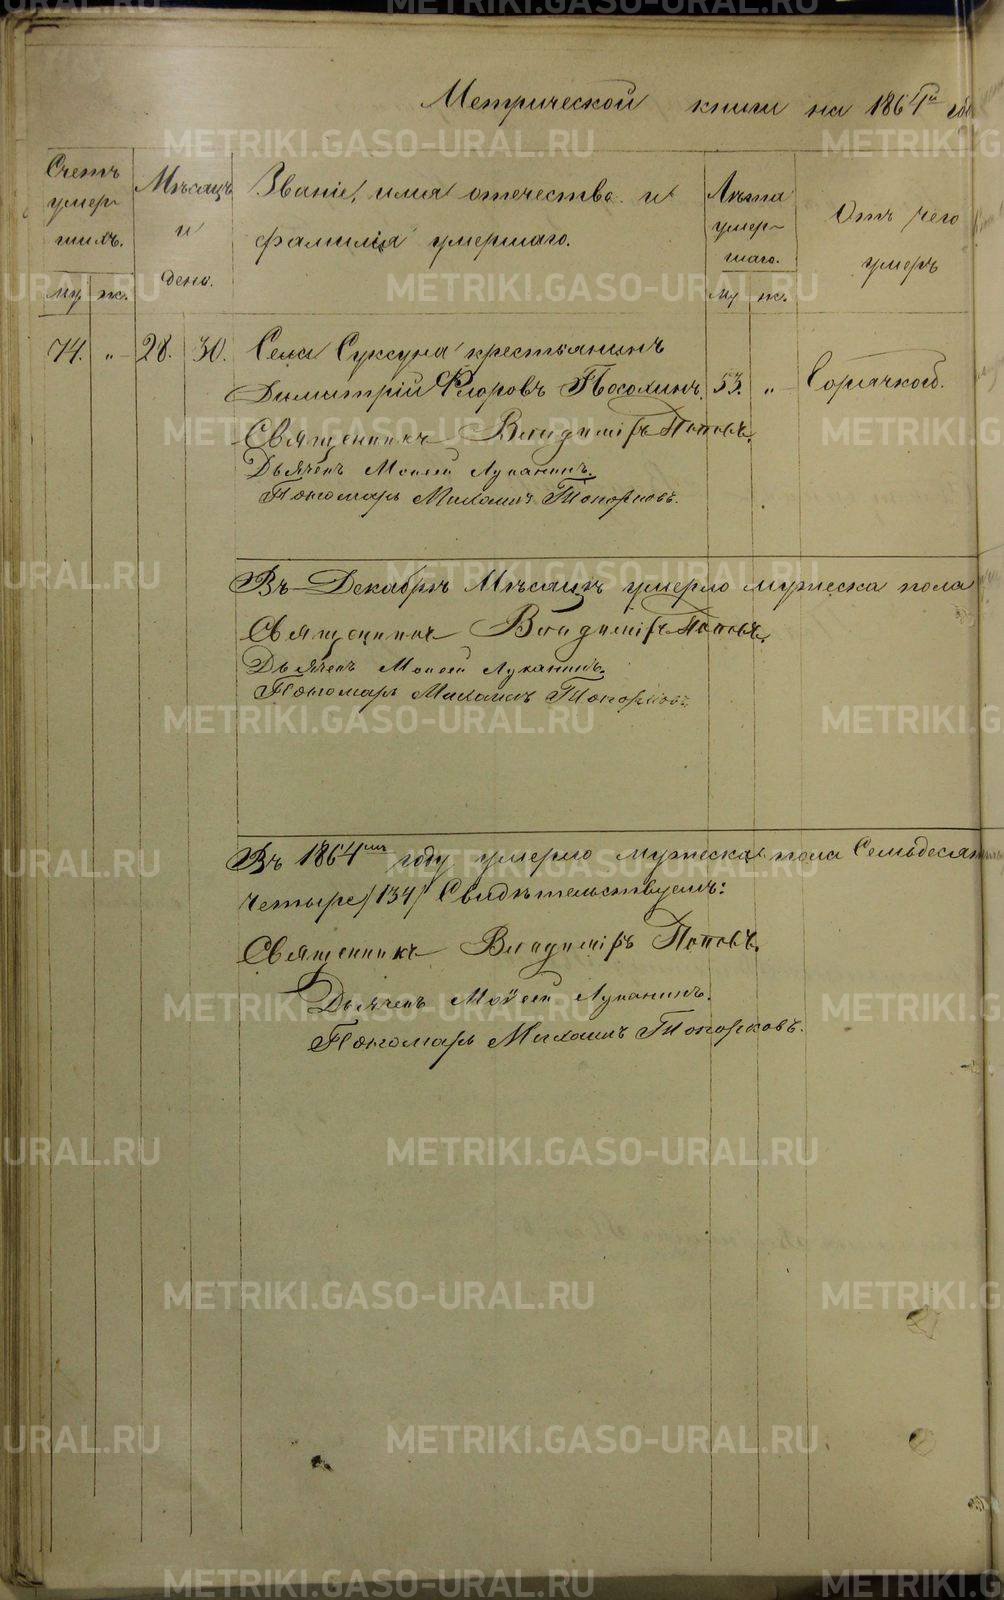 Метрической книги на 1864й год
Счетъ умер-шихъ.
му ж.
Мѣсяцъ и день.
Званіе, имя отечество и фамилія умершаго.
Лѣта умер-шаго.
му ж.
Отъ чего умеръ
74. „ 28. 30. Села Суксуна крестьянинъ
Димитрій Флоровъ Посохинъ. 53. „ Горячкой.
Священникъ Владиміръ Поповъ.
Дьячекъ Моисей Луканинъ.
Пономарь Михаилъ Топорковъ.
Въ Декабрѣ Мѣсяцѣ умерло мужеска пола
Священникъ Владиміръ Поповъ.
Дьячекъ Моисей Луканинъ.
Пономарь Михаилъ Топорковъ.
Въ 1864мъ году умерло мужеска пола Семьдесят
четыре /134/ Свидѣтельствуемъ:
Священникъ Владиміръ Поповъ.
Дьячекъ Моѵсей Луканинъ.
Пономарь Михаилъ Топорковъ.
METRIKI.GASO-URAL.RU